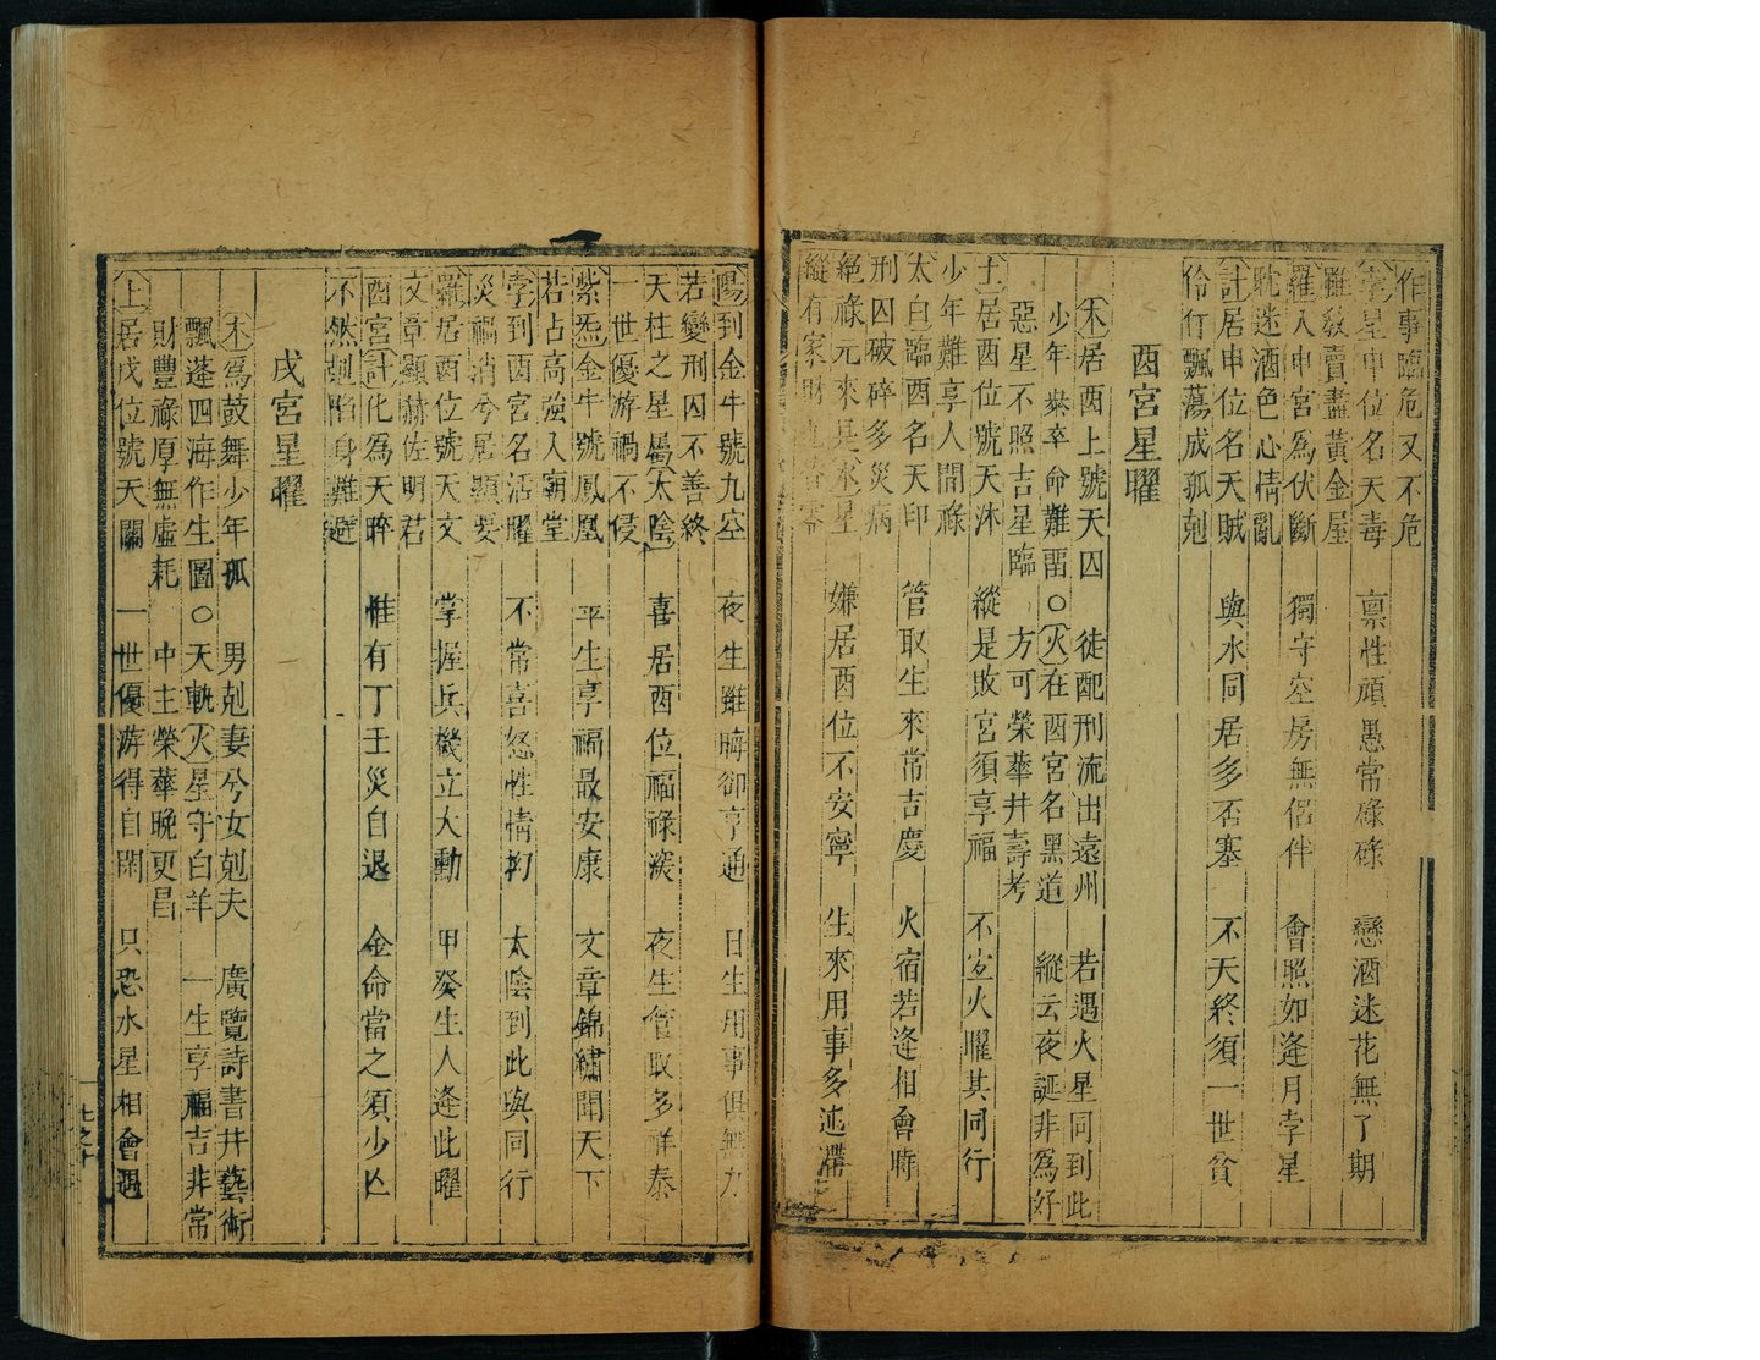 作事臨危又不危
孛星申位名天毒　稟性頑愚常碌碌　戀酒迷花無了期
雖教賣盡黃金屋
羅入申宮爲伏斷　獨守空房無侶伴　會照如逢月孛星
耽迷酒色心情亂
計居申位名天賊　與水同居多否塞　不天終須一世貧
伶仃飄蕩成孤剋
酉宮星曜
木居酉上號天囚　徒配刑流出遠州　若遇火星同到此
少年卒命難留○火在酉宮名黑道　縱云夜誕非爲好
惡星不照吉星臨　方可榮華井壽考
土居酉位號天沐　縱是敗宮須享福　不宜火曜其同行
少年難享人間祿
太白臨酉名天印　管取生來常吉慶　火宿若逢相會時
刑囚破碎多災病
絕祿元來是水星　嫌居酉位不安寧　生來用事多迍滯
縱有家財
陽到金牛號九空　夜生雖晦卻亨通　日生用事俱無力
若變刑囚不善終
天柱之星屬太陰　喜居酉位福祿深　夜生管取多祥泰
一世優游禍不侵
紫炁金牛號鳳凰　平生享福最安康　文章錦繡聞天下
若占高強入廟堂
孛到酉宮名活曜　不常喜怒性情拗　太陰到此與同行
災禍消兮居顯要
羅居酉位號天文　掌握兵機立大勳　甲癸生人逢此曜
文章顯赫佐明君
酉宮計化爲天晬　惟有丁壬災自退　金命當之須少亾
不然剋陷身難避
戌宮星曜
木爲鼓舞少年孤　男剋妻兮女剋夫　廣覽詩書井藝術
飄蓬四海作生圖○天軌火星守白羊　一生享福吉非常
財豐祿厚無虛耗　中主榮華晚更昌
土居戌位號天關　一世優游得自閑　只恐水星相會遇